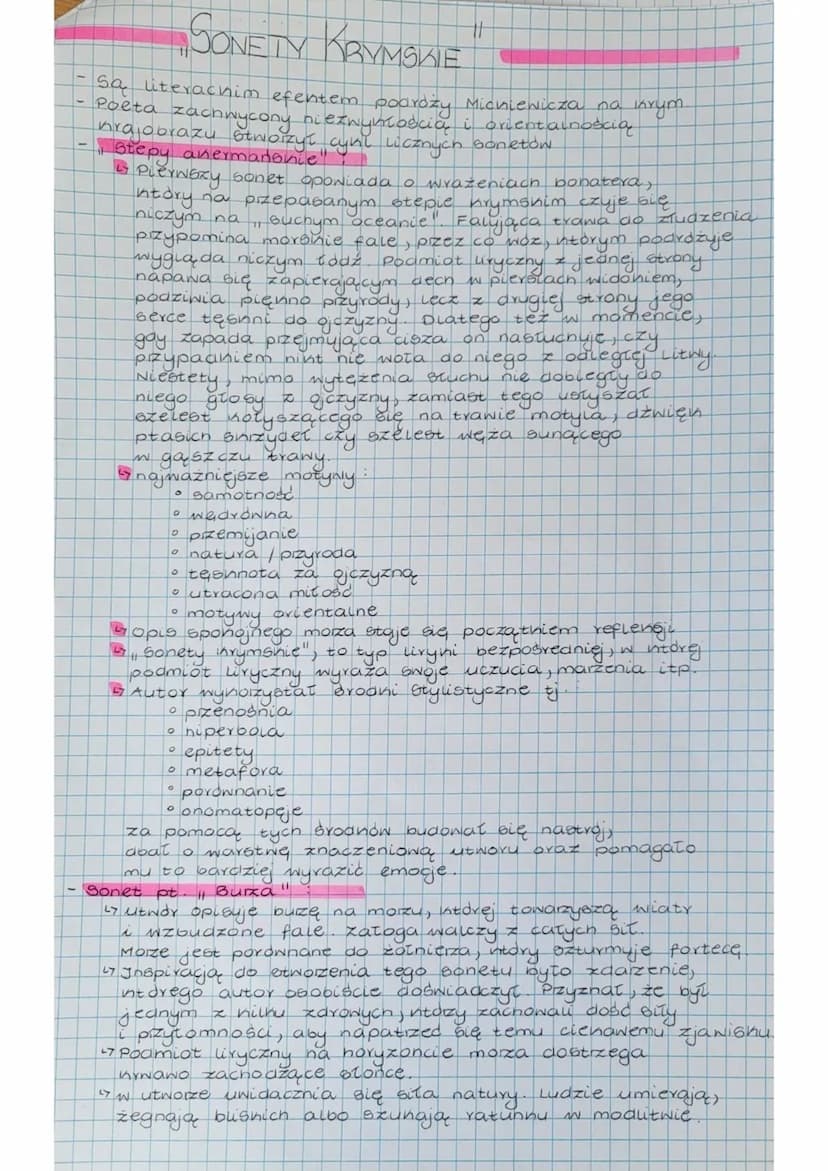 „SONETY KRYMSKIE"
- Są literackim efektem podróży Mickiewicza na Krym
- Poeta zachwycony niezwykłością i orientalnością
krajobrazu stworzył cykl licznych sonetów
- „Stepy akermańskie" :
↳ Pierwszy sonet opowiada o wrażeniach bohatera,
który na przepasanym stepie krymskim czuje się
niczym na „suchym oceanie". Falująca trawa do złudzenia
przypomina morskie fale, przez co wóz, którym podróżuje
wygląda niczym łódź. Podmiot liryczny z jednej strony
napawa się zapierającym dech w piersiach widokiem,
podziwia piękno przyrody, lecz z drugiej strony jego
serce tęskni do ojczyzny. Dlatego też w momencie,
gdy zapada przejmująca cisza on nasłuchuje, czy
przypadkiem nikt nie woła do niego z odległej Litwy.
Niestety, mimo wytężenia słuchu nie dobiegły do
niego głosy z ojczyzny, zamiast tego usłyszał
szelest kołyszącego się na trawie motyla, dźwięk
ptasich skrzydeł czy szelest węża sunącego
w gąszczu trawy.
↳ najważniejsze motywy :
° samotność
° wędrówka
° przemijanie
° natura / przyroda
° tęsknota za ojczyzną
° utracona miłość
° motywy orientalne
↳ Opis spokojnego morza staje się początkiem refleksji
↳ „Sonety krymskie", to typ liryki bezpośredniej, w której
podmiot liryczny wyraża swoje uczucia, marzenia itp.
↳ Autor wykorzystał środki stylistyczne tj.
° przenośnia
° hiperbola
° epitety
° metafora
° porównanie
° onomatopeje
za pomocą tych środków budował się nastrój,
dbał o warstwę znaczeniową utworu oraz pomagało
mu to bardziej wyrazić emocje.
- Sonet pt. „Burza" :
↳ utwór opisuje burzę na morzu, której towarzyszą wiatr
i wzbudzone fale. Załoga walczy z całych sił.
Morze jest porównane do żołnierza, który szturmuje fortecę.
↳ Inspiracją do stworzenia tego sonetu było zdarzenie,
którego autor osobiście doświadczył. Przyznał, że był
jednym z kilku zdrowych, którzy zachowali dość siły
i przytomności, aby napatrzeć się temu ciekawemu zjawisku
↳ Podmiot liryczny na horyzoncie morza dostrzega
krwawo zachodzące słońce.
↳ w utworze uwidacznia się siła natury. Ludzie umierają,
żegnają bliskich albo szukają ratunku w modlitwie.